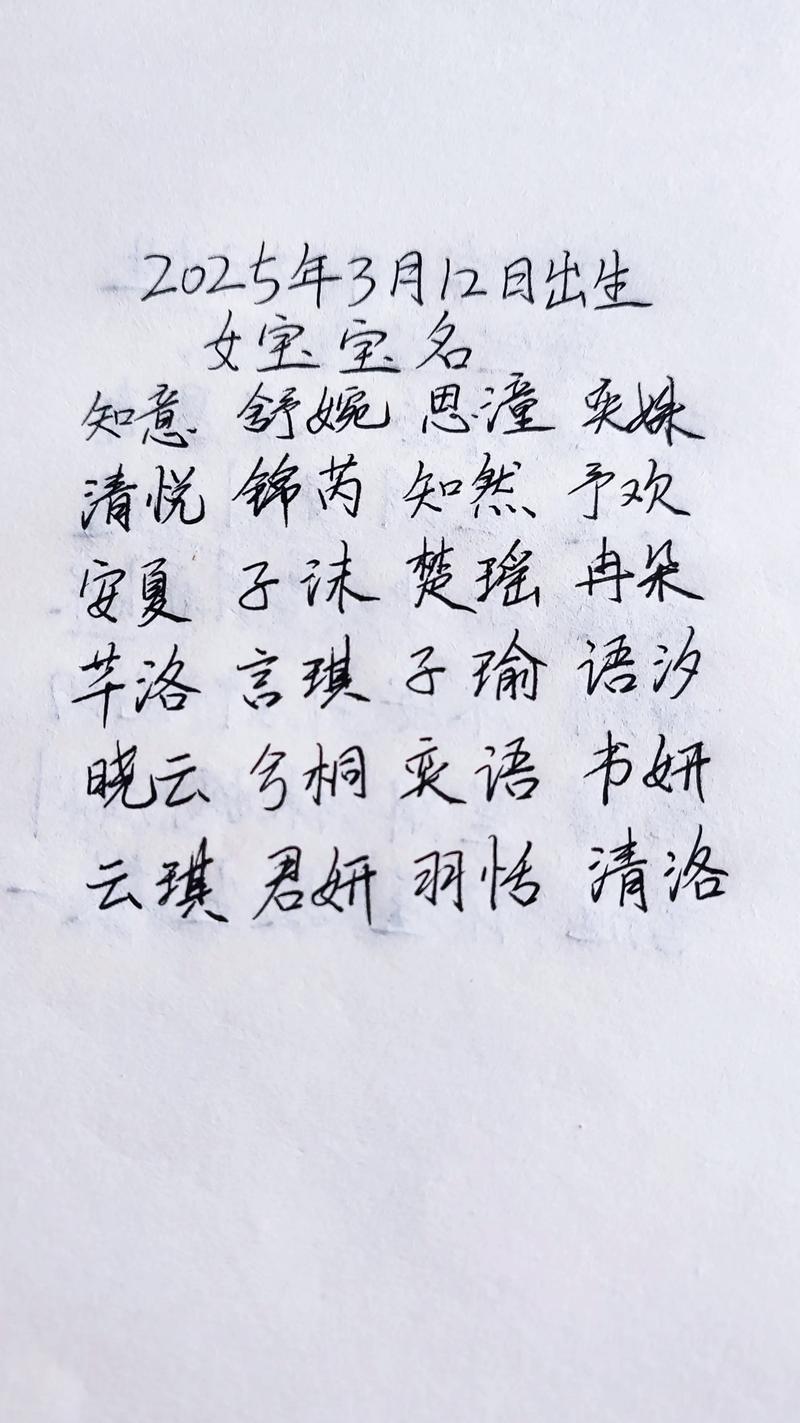 2025年3月12日出生
女宝宝名
知意 舒婉 思潼 奕姝
清悦 锦芮 知然 予欢
安夏 子沫 楚瑶 冉朵
芊洛 言琪 子瑜 语汐
晓云 兮桐 奕语 书妍
云琪 君妍 羽恬 清洛